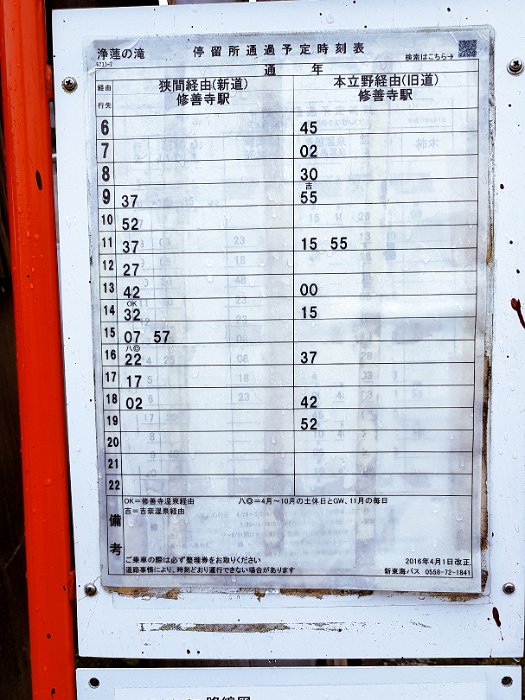 浄蓮の滝 停留所通過予定時刻表
検索はこちら→
通 年
経由 狭間経由(新道) 本立野経由(旧道)
行先 修善寺駅 修善寺駅
6 45
7 02
8 30
吉
9 37 55
10 52
11 37 15 55
12 27
13 42 00
OK
14 32 15
15 07 57
八◎
16 22 37
17 17
18 02 42
19 52
20
21
22
備考
OK=修善寺温泉経由 八◎=4月~10月の土休日とGW、11月の毎日
吉=吉奈温泉経由
ご乗車の際は必ず整理券をお取りください
道路事情により、時刻どおり運行できない場合があります
2016年4月1日改正
新東海バス 0558-72-1841